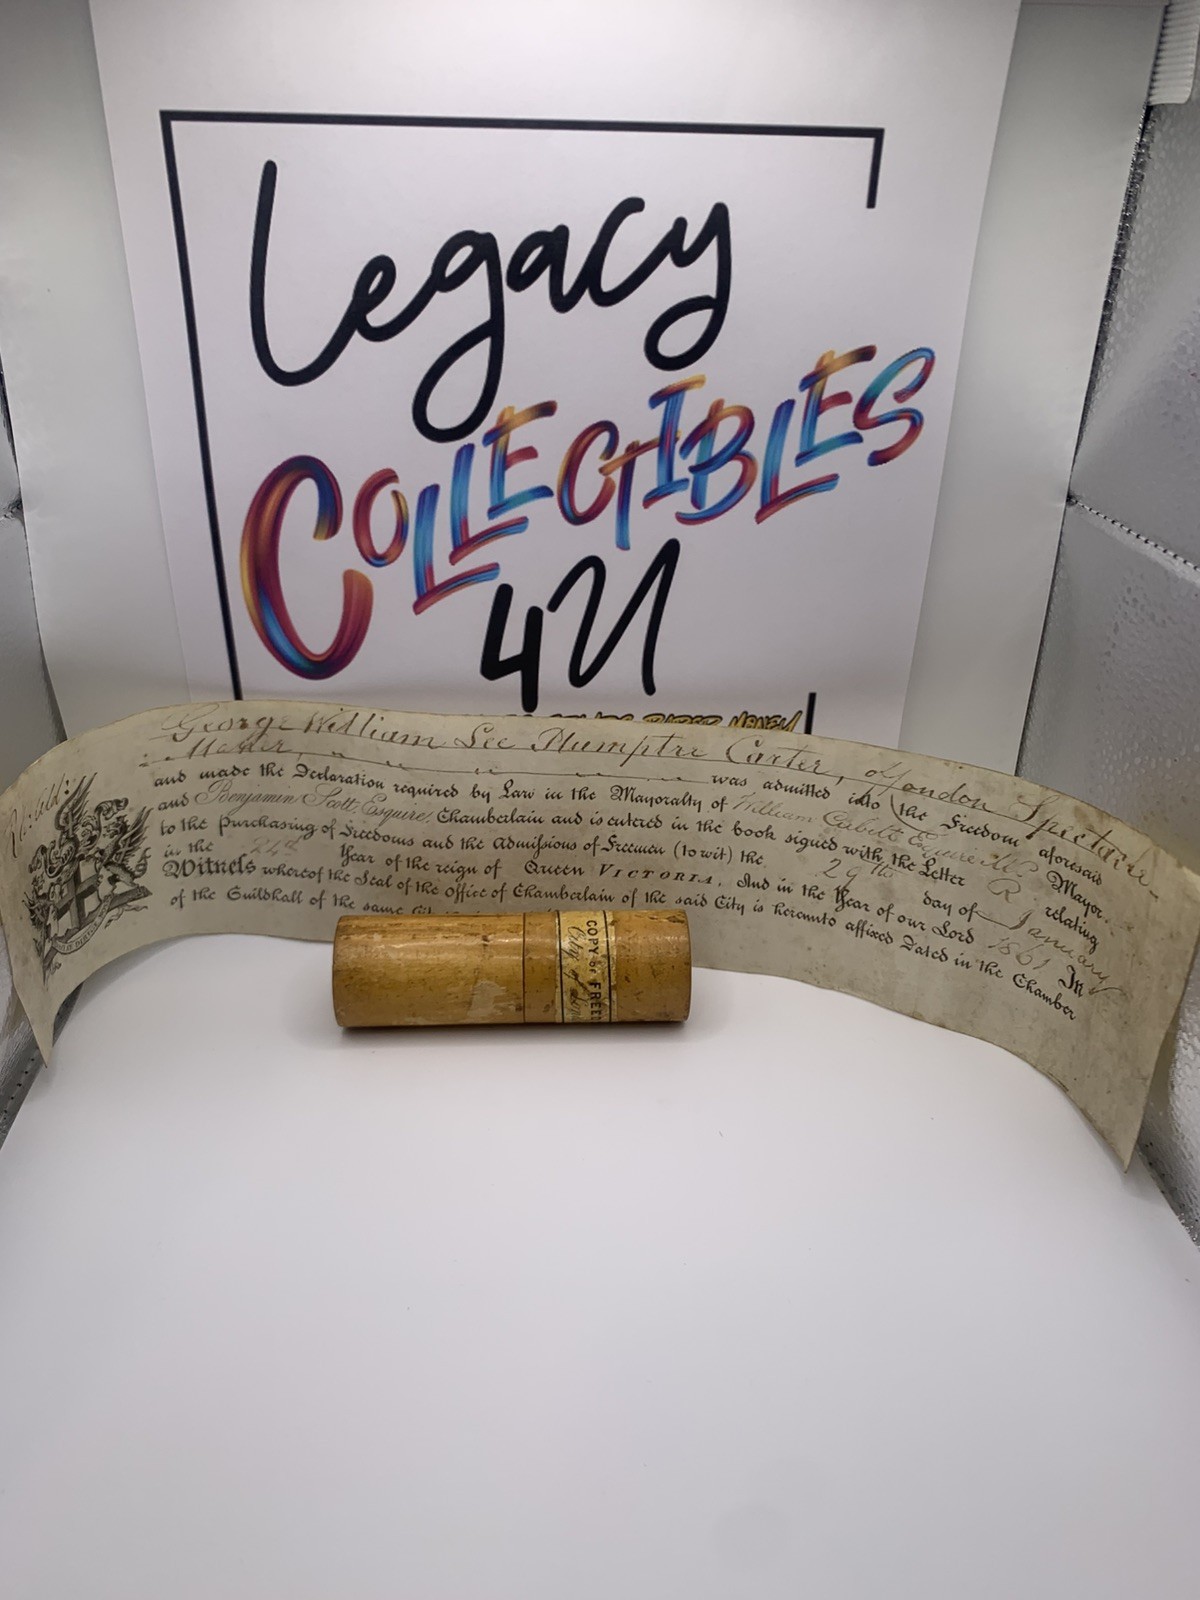 Legacy
COLLECTIBLES
4U
MONEY
George William Lee Plumptre Carter, of London Spectacle-
Maker, was admitted into the Freedom aforesaid
and made the Declaration required by Law in the Mayoralty of William Cubitt Esquire M.P. Mayor.
and Benjamin Scott, Esquire, Chamberlain and is entered in the book signed with the Letter R relating
to the Purchasing of Freedoms and the Admissions of Freemen (to wit) the 29th day of January
in the 24th Year of the reign of Queen VICTORIA, And in the Year of our Lord 1861 In
Witness whereof the Seal of the Office of Chamberlain of the said City is hereunto affixed Dated in the Chamber
of the Guildhall of the same
COPY OF FREE
City of